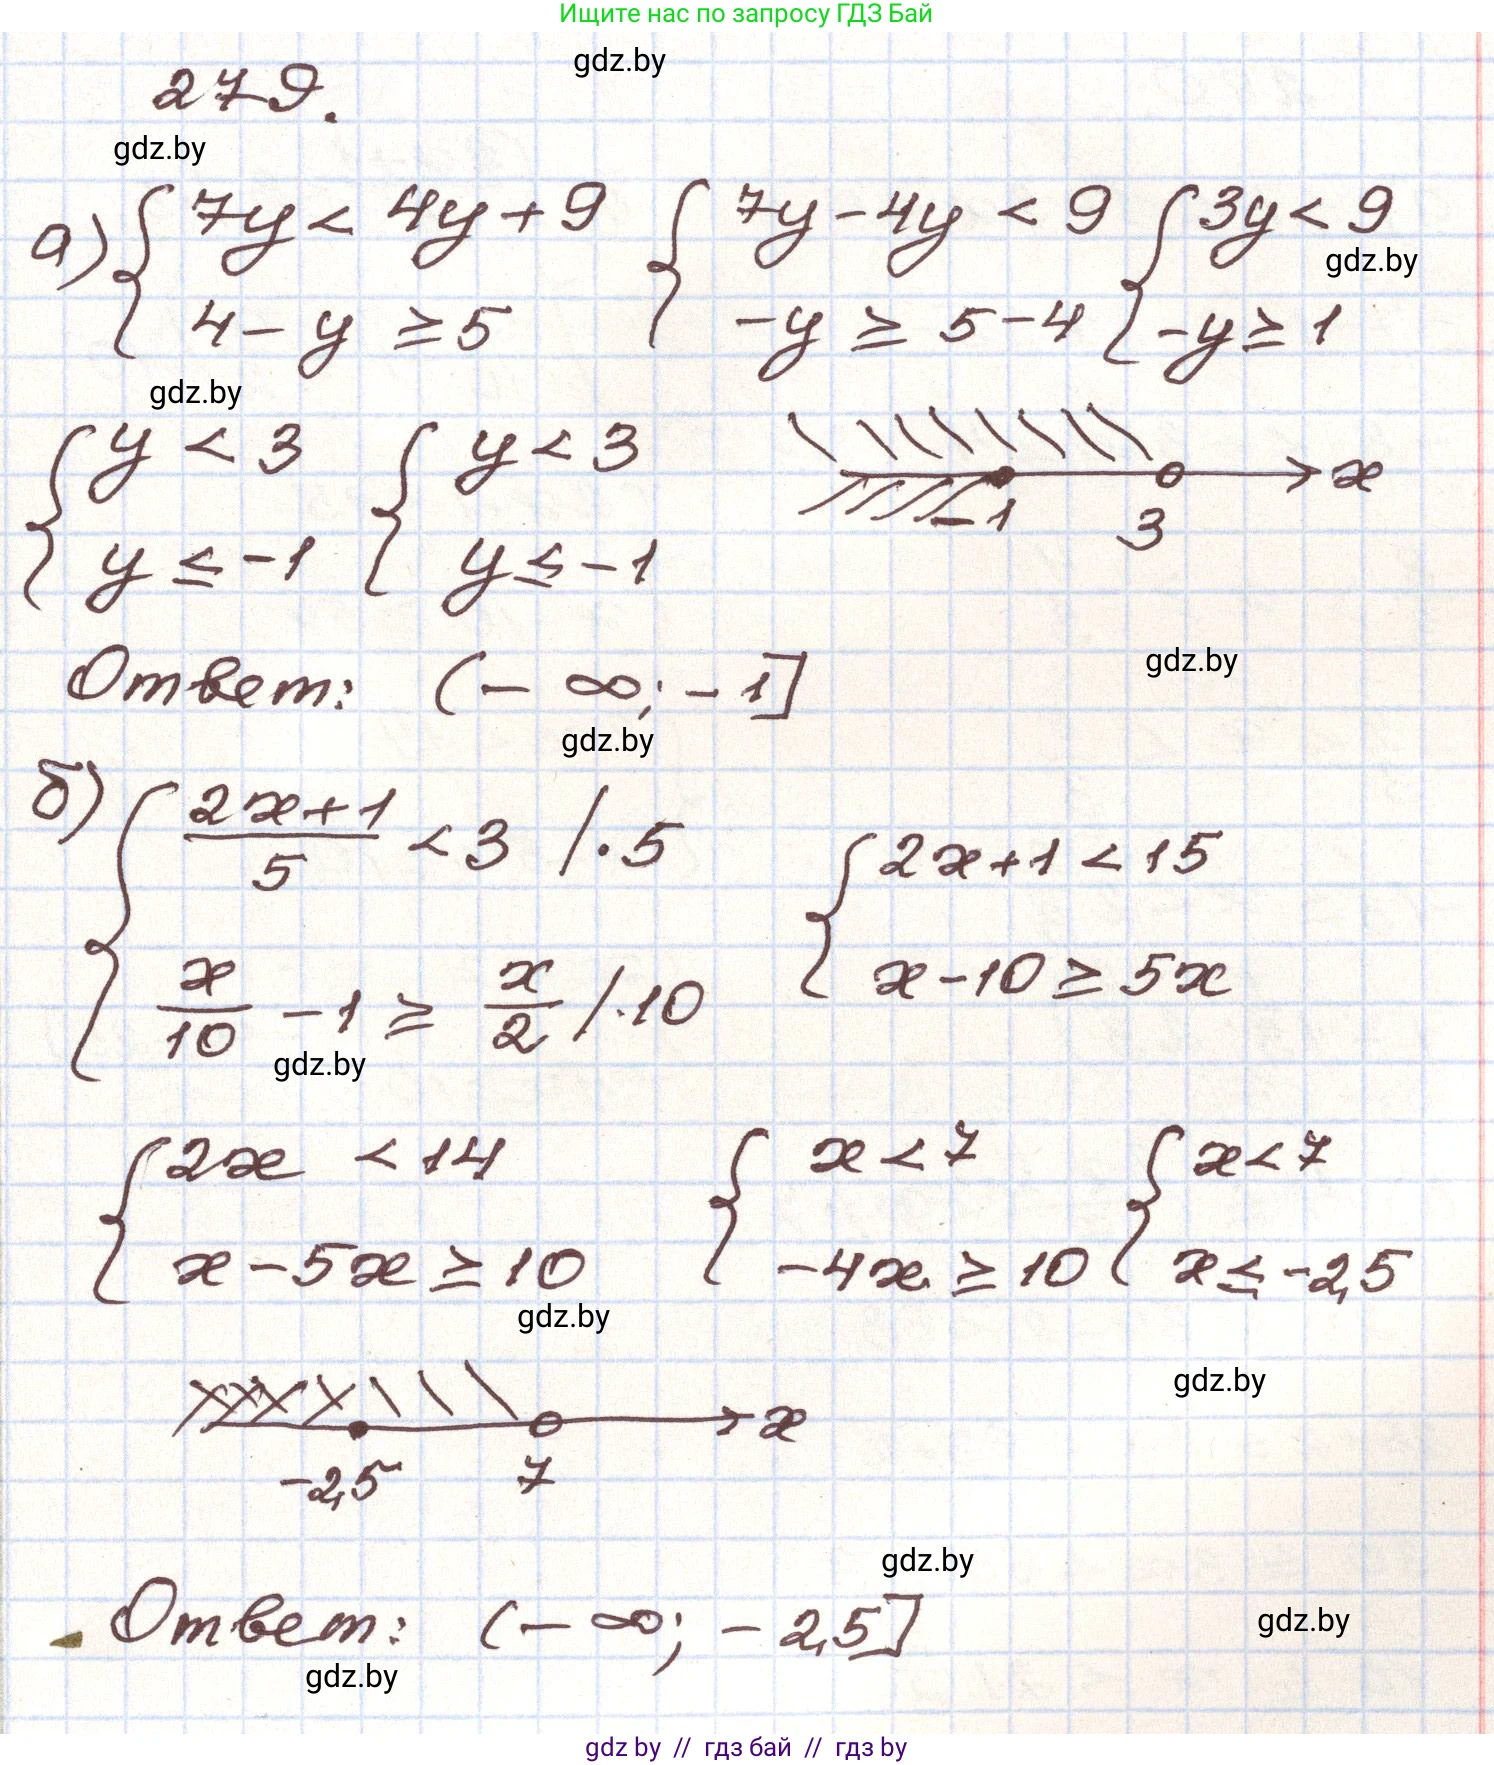 Ищите нас по запросу ГДЗ Бай
gdz.by
279.
gdz.by
а) { 7y < 4y + 9 { 7y - 4y < 9 { 3y < 9
gdz.by
4 - y ≥ 5 -y ≥ 5 - 4 -y ≥ 1
gdz.by
{ y < 3 { y < 3
x
-1 3
y ≤ -1 y ≤ -1
Ответ: (-∞; -1]
gdz.by
gdz.by
б) { (2x+1)/5 < 3 / ·5 { 2x+1 < 15
x/10 - 1 ≥ x/2 / ·10 x - 10 ≥ 5x
gdz.by
{ 2x < 14 { x < 7 { x < 7
x - 5x ≥ 10 -4x ≥ 10 x ≤ -2,5
gdz.by
gdz.by
x
-2,5 7
gdz.by
Ответ: (-∞; -2,5]
gdz.by
gdz.by
gdz by // гдз бай // гдз by